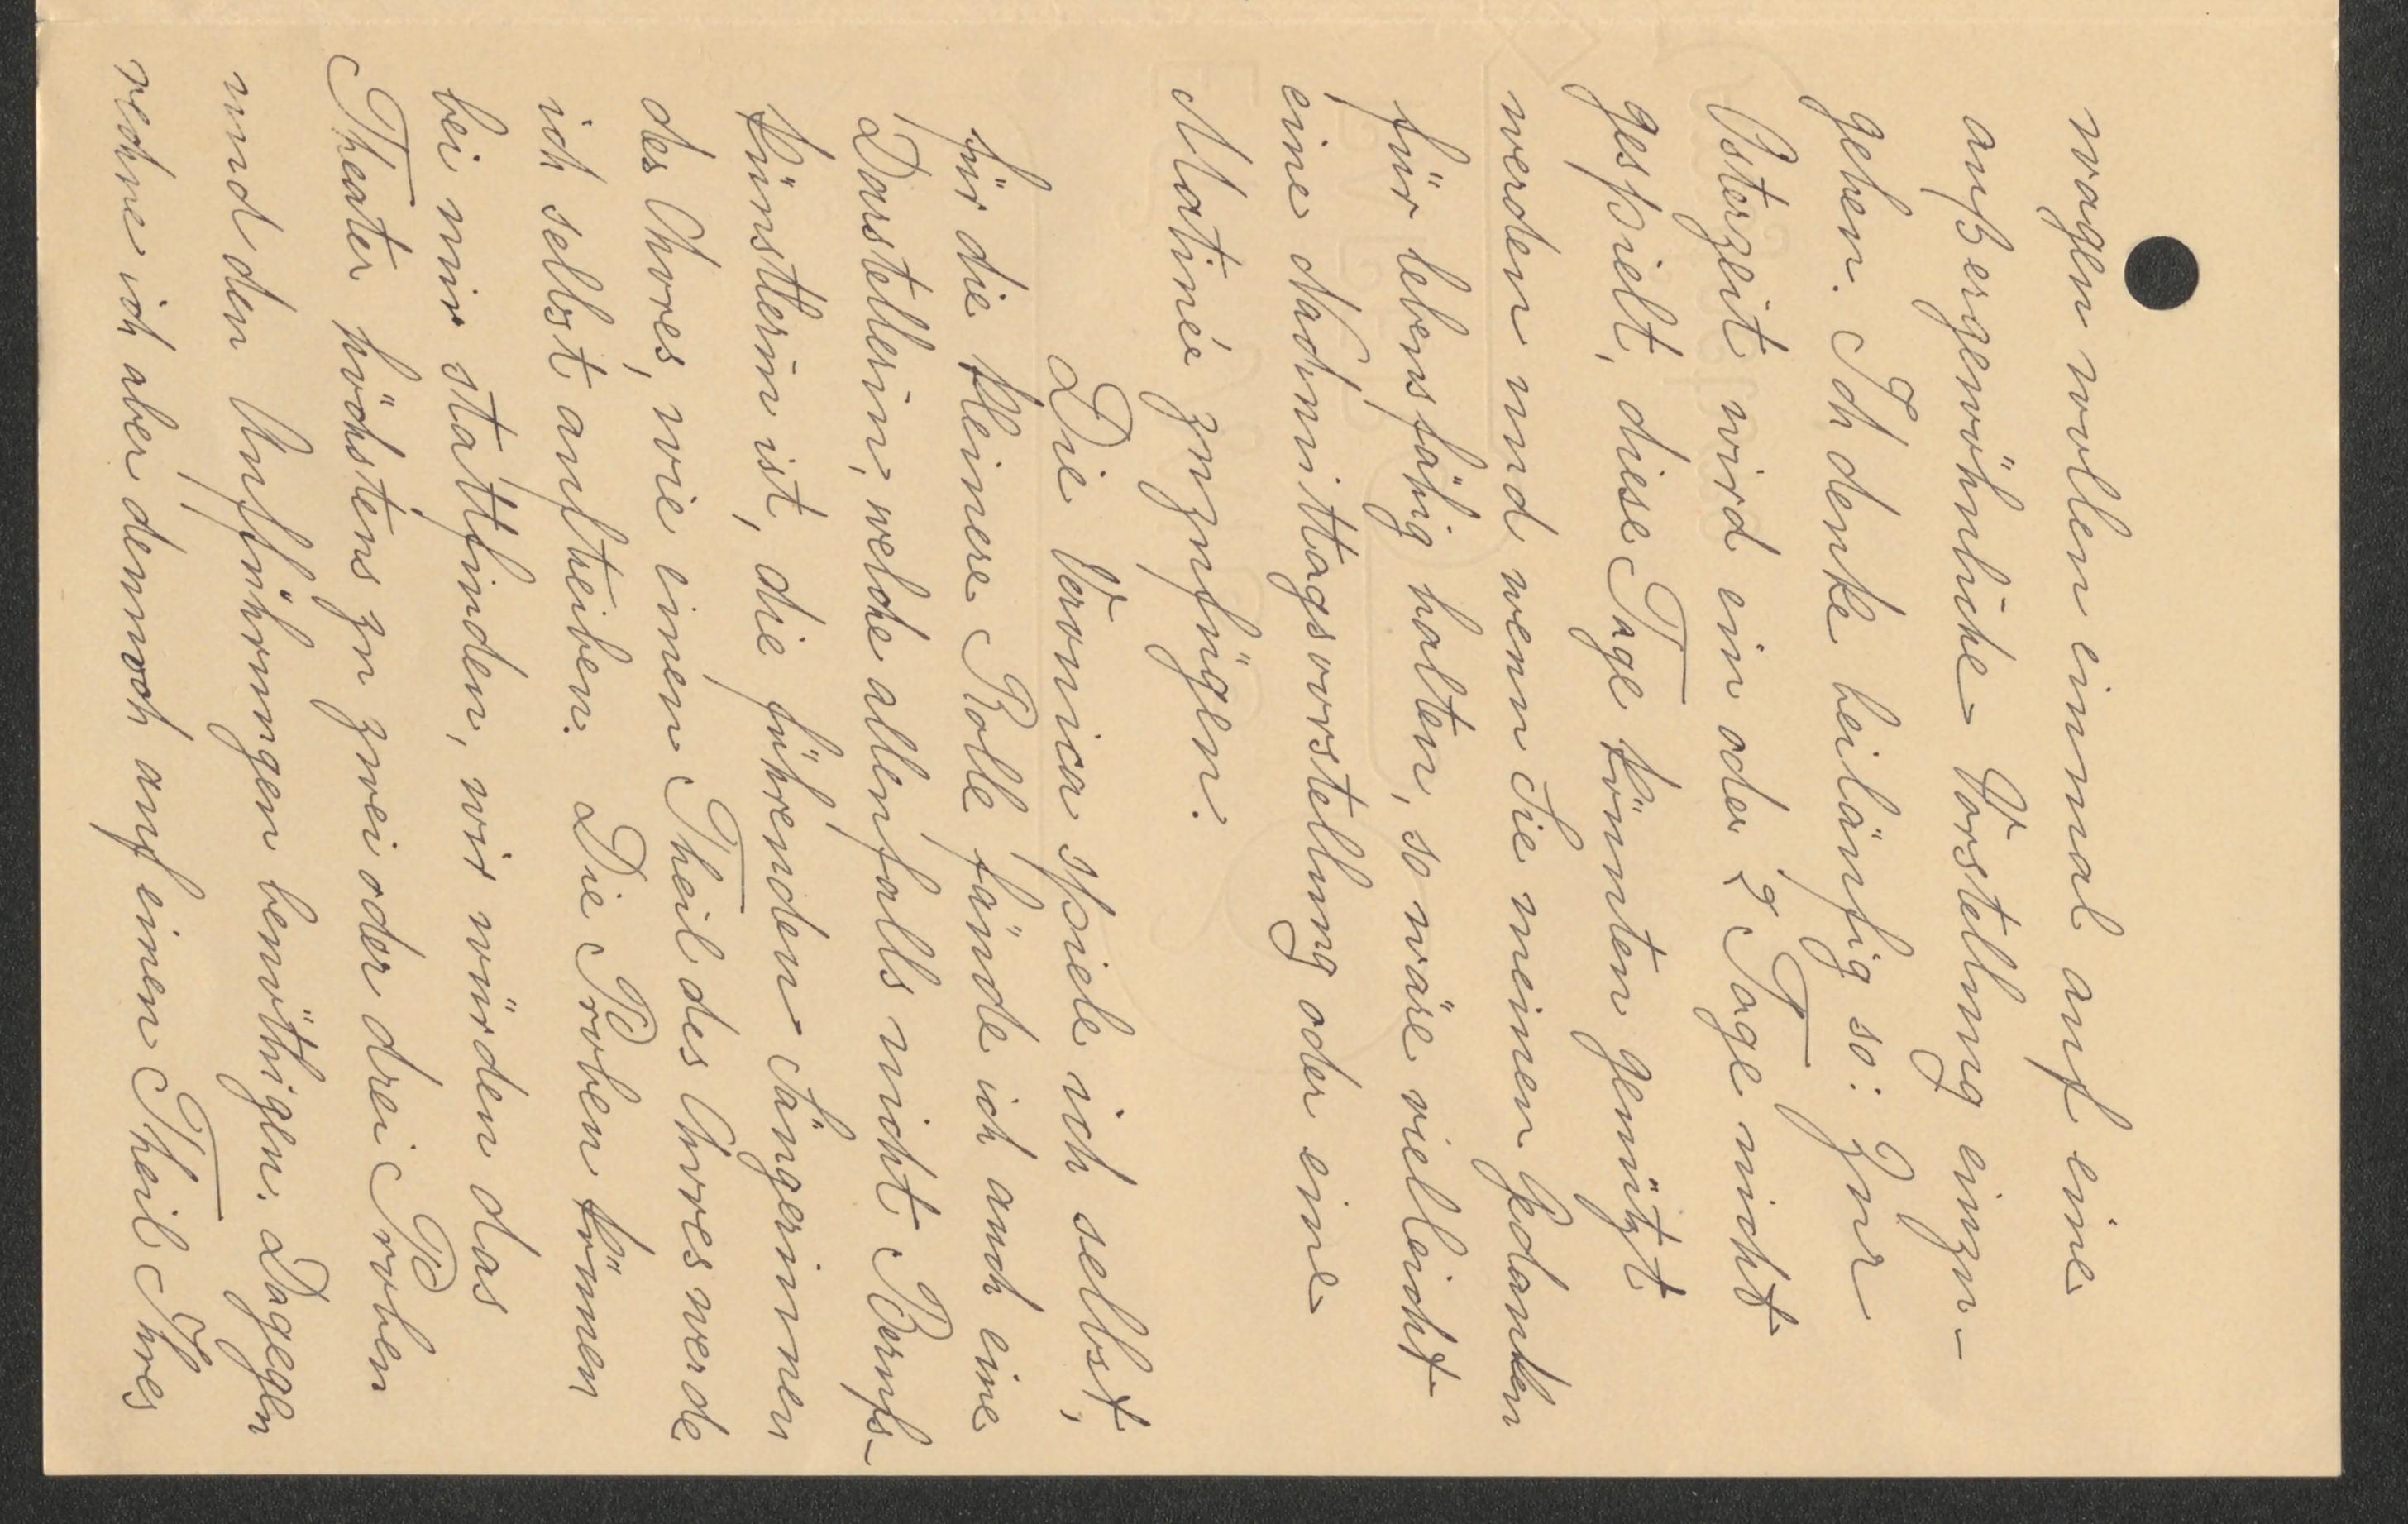 wagen wollen einmal auf eine
außergewöhnliche Vorstellung einzu-
gehen. Ich denke beiläufig so: Zur
Osterzeit wird ein oder 2 Tage nicht
gespielt, diese Tage könnten genützt
werden und wenn Sie meinen Gedanken
für lebensfähig halten, so wäre vielleicht
eine Nachmittagsvorstellung oder eine
Matinée zuzufügen.
Die Veronica spiele ich selbst,
für die kleinere Rolle fände ich auch eine
Darstellerin, welche allenfalls nicht Berufs-
künstlerin ist, die führenden Sängerinnen
des Chores, wie einen Theil des Chores werde
ich selbst auftreiben. Die Proben können
bei mir stattfinden, wir würden das
Theater höchstens zu zwei oder drei Proben
und den Aufführungen benöthigen. Dagegen
rechne ich aber dennoch auf einen Theil Ihres